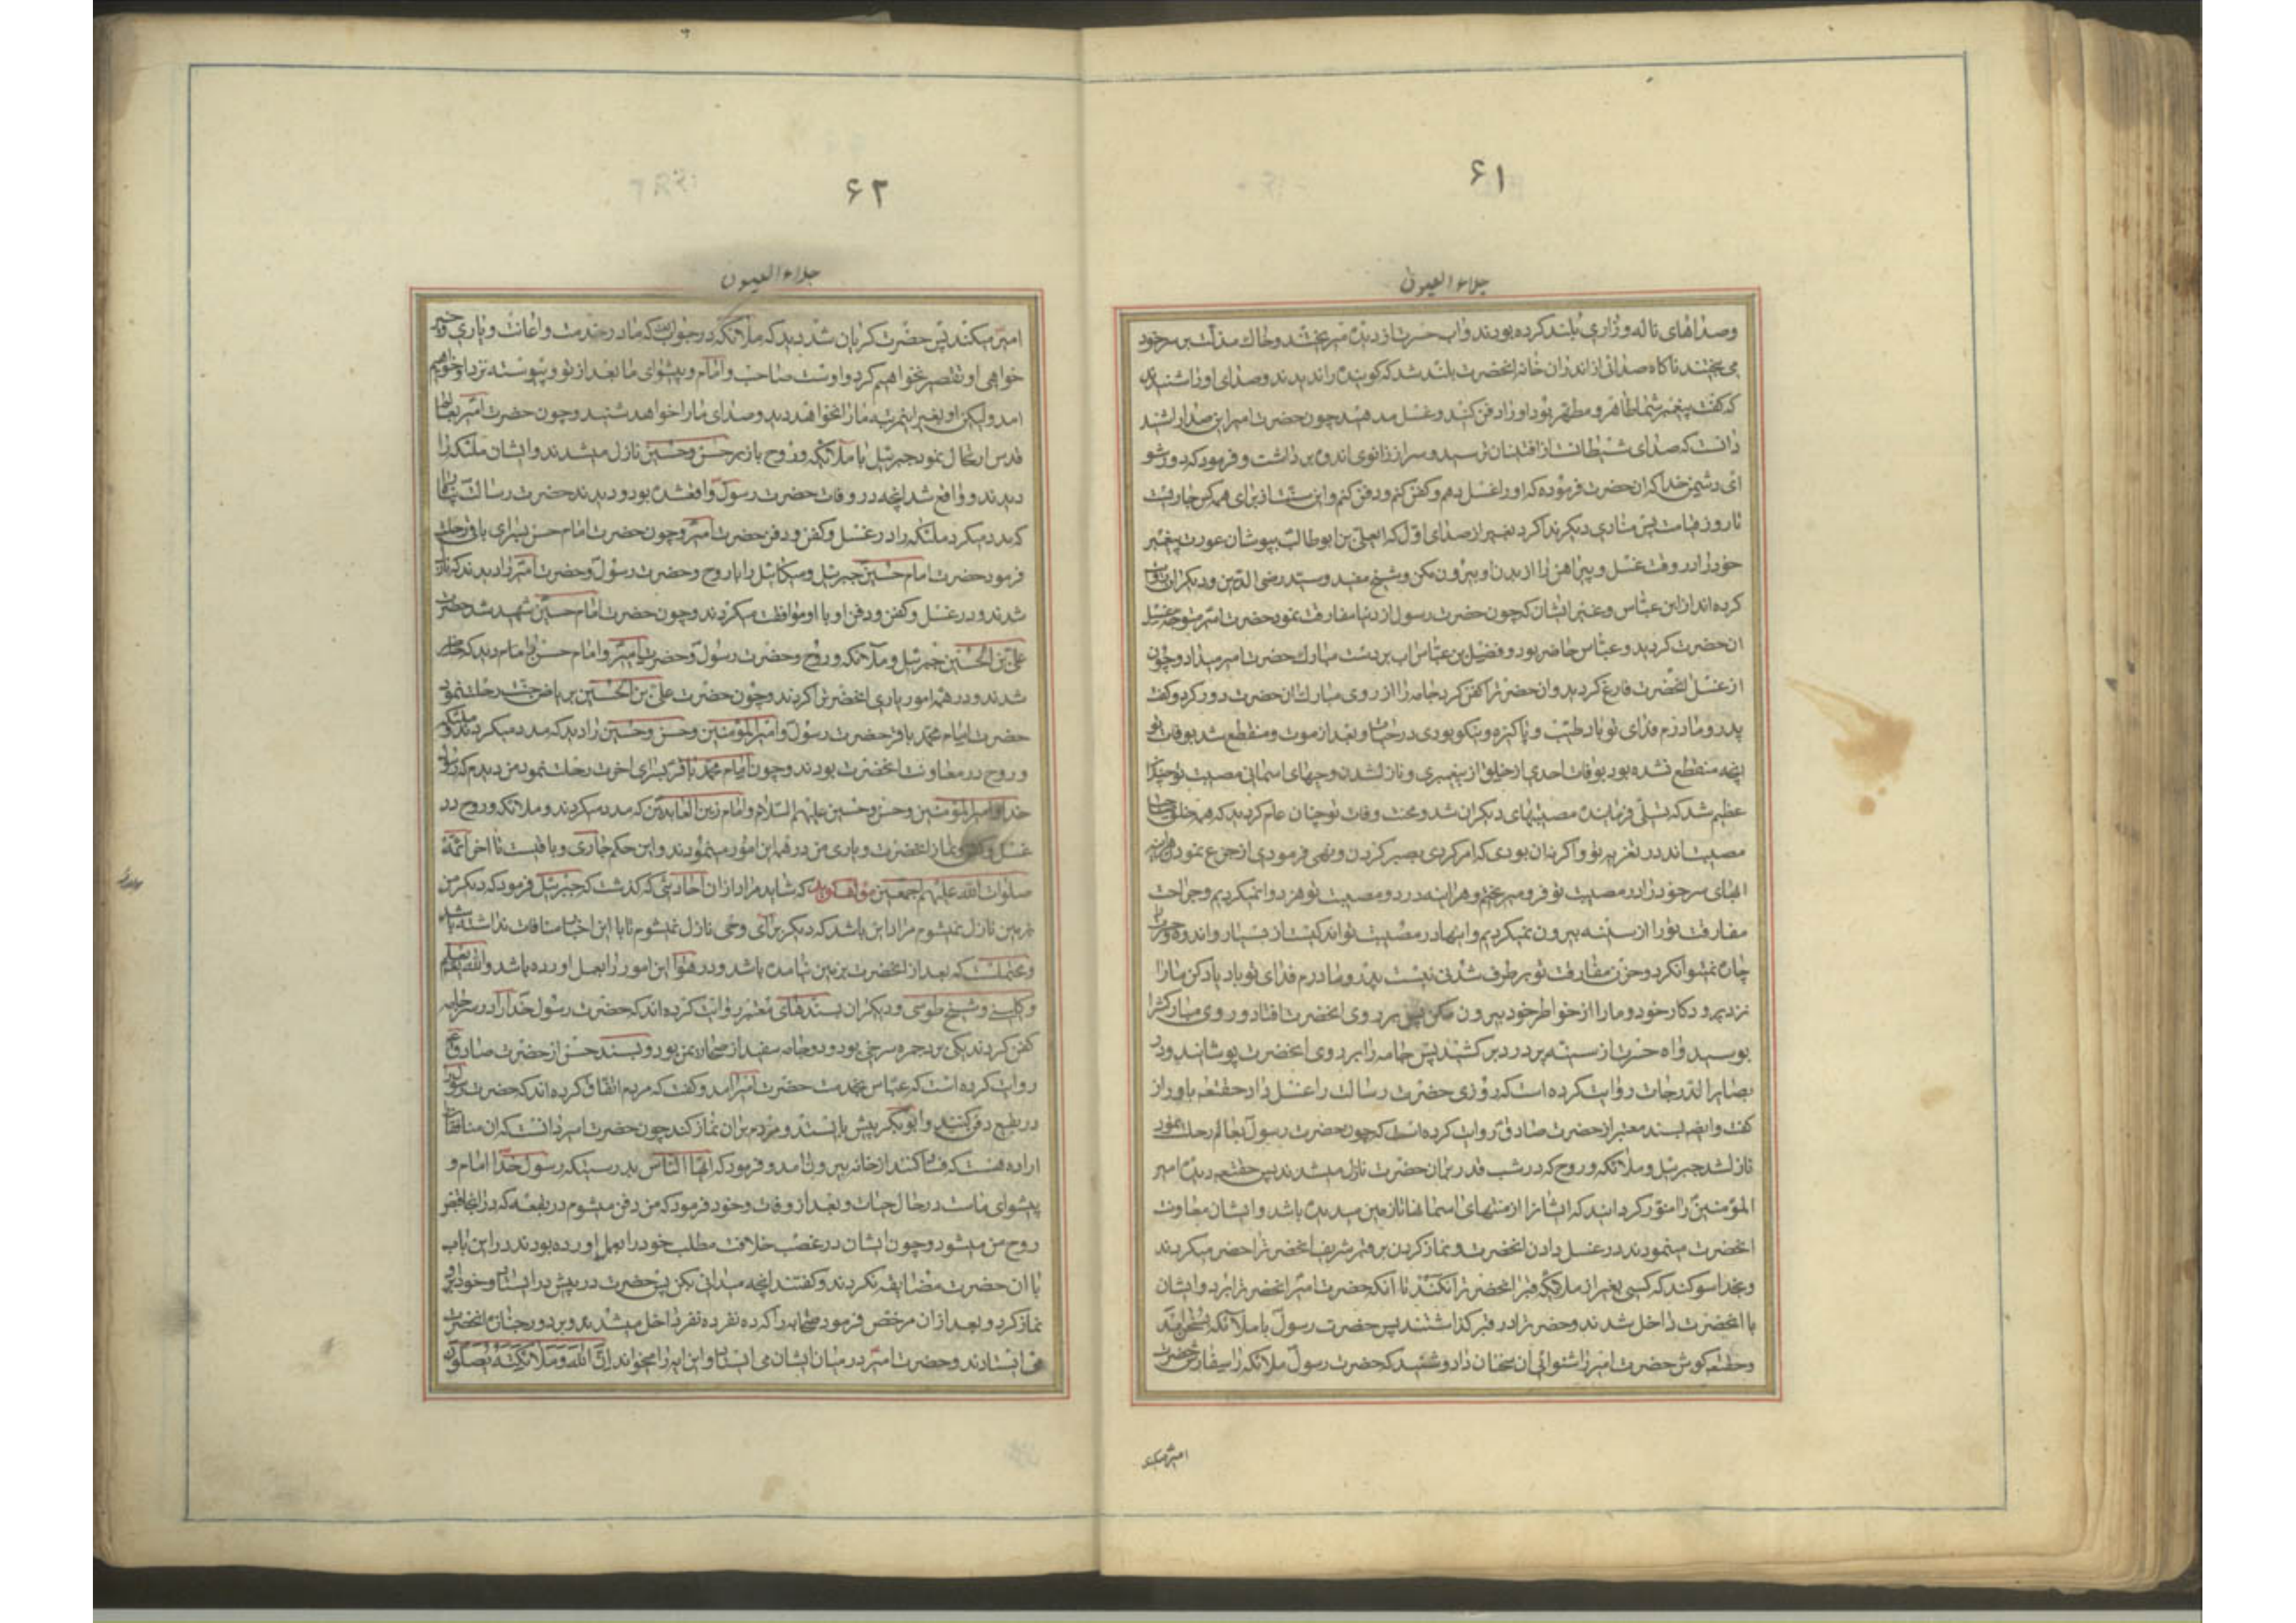 ۶۱
جلاء العیون
وصداهای ناله و زاری بلند کرده بودند و اب حسرت از دیده میریختند و خاك مذلت بر سر خود
می بیختند ناکاه صدائی از اندران خانه انحضرت بلند شد که کوینده را ندیدند و صدای او را شنیدند
که گفت پیغمبر شما طاهر و مطهر بود او را دفن کنید و غسل مدهید چون حضرت امیر این صدا را شنید
دانست که صدای شیطانست از افتنان ترسید و سر از زانوی اندوه برداشت و فرمود که دور شو
ای دشمن خدا که ان حضرت فرموده که او را غسل بدهم و کفن کنم و دفن کنم و این سنت از برای همه کس جاریست
تا روز قیامت پس منادی دیکر ندا کرد بغیر از صدای اول که ایعلی بن ابوطالب بپوشان عورت پیغمبر
خود را در وقت غسل و پیراهن را از بدن او بیرون مکن و شیخ مفید و سید رضی الدین و دیکران روایت
کرده اند از ابن عباس و غیر ایشان که چون حضرت رسول از دنیا مفارقت نمود حضرت امیر متوجه غسل
ان حضرت کردید و عباس حاضر بود و فضیل بن عباس اب بر دست مبارك حضرت امیر میداد و چون
از غسل انحضرت فارغ کردید و ان حضرترا کفن کرد جامه را از روی مبارك ان حضرت دور کرد و گفت
پدر و مادرم فدای تو باد طیب و پاکیزه و نیکو بودی در حیات و بعد از موت و منقطع شد بوفات تو
انچه منقطع نشده بود بوفات احدی از خلق از پیغمبری و نازل شدن وحیهای اسمانی مصیبت تو چندان
عظیم شد که تسلی فرماینده مصیبتهای دیکران شد و محنت وفات تو چنان عام کردید که همه خلق صاحب
مصیبت اند در تعزیه تو و اکر نه ان بودی که امر کردی بصبر کردن و نهی فرمودی از جزع نمودن هراینه
ابهای سر خود را در مصیبت تو فرو میریختم و هراینه درد مصیبت تو هر دوا نمیکردیم و جراحت
مفارقت تو را از سینه بیرون نمیکردیم و اینها در مصیبت تو اندکیست از بسیار و اندوه
چاره نمیتوان کرد و حزن مفارقت تو بر طرف شدنی نیست پدر و مادرم فدای تو باد یاد کن ما را
نزد پروردکار خود و ما را از خواطر خود بیرون مکن پس بر روی انحضرت افتاد و روی مبارکشرا
بوسید و اه حسرت از سینه پر درد بر کشید پس جامه را بر روی انحضرت پوشانید و در
بصایر الدرجات روایت کرده است که روزی حضرت رسالت را غسل داد حقتعالی
کفت و ایضا بسند معتبر از حضرت صادق روایت کرده است که چون حضرت رسول بعالم رحلت نمود
نازل شد جبرئیل و ملائکه و روح که در شب قدر بر ان حضرت نازل میشدند پس حقتعالی دیده امیر
المؤمنین را منور کردانید که ایشانرا از منتهای اسمانها تا زمین میدید و ایشان معاونت
انحضرت مینمودند در غسل دادن انحضرت و نماز کردن بر او قبر شریف انحضرترا حضر میکردند
و بخدا سوکند که کسی بغیر از ملائکه قبر انحضرترا نکند تا انکه حضرت امیر انحضرترا برد و ایشان
با انحضرت داخل شدند و حضرترا در قبر کذاشتند پس حضرت رسول با ملائکه بسخن امد
و حقتعالی کوش حضرت امیر را شنوائی ان سخنان داد و شنید که حضرت رسول ملائکه را سفارش حضرت
امیر میکند
۶۲
جلاء العیون
امیر میکند پس حضرت کریان شد دید که ملائکه در جواب گفتند که ما در خدمت و اعانت و یاری و خیر
خواهی او تقصیر نخواهیم کرد و اوست صاحب و امام و پیشوای ما بعد از تو و پیوسته نزد او خواهیم
امد ولیکن او بغیر این مرتبه ما را نخواهد دید و صدای ما را خواهد شنید و چون حضرت امیر بعالم
قدس ارتحال نمود جبرئیل با ملائکه و روح باز بر حسن و حسین نازل میشدند و ایشان ملئکه را
دیدند و واقع شد انچه در وفات حضرت رسول واقعشده بود و دیدند حضرت رسالت پناه را
که مدد میکرد ملئکه را در غسل و کفن و دفن حضرت امیر و چون حضرت امام حسن بسرای باقی رحلت
فرمود حضرت امام حسین جبرئیل و میکائیل را با روح و حضرت رسول و حضرت امیر را دیدند که نازل
شدند و در غسل و کفن و دفن او با او موافقت میکردند و چون حضرت امام حسین شهید شد حضرت
علی بن الحسین جبرئیل و ملائکه و روح و حضرت رسول و حضرت امیر و امام حسن را دید که حاضر
شدند و در همه امور یاری انحضرترا کردند و چون حضرت علی بن الحسین بریاض جنت رحلت نمود
حضرت امام محمد باقر حضرت رسول و امیر المؤمنین و حسن و حسین را دید که مدد میکردند و ملئکه
و روح در معاونت انحضرت بودند و چون امام محمد باقر بسرای اخرت رحلت نمود من دیدم که رسول
خدا و امیر المؤمنین و حسن و حسین علیهم السلام و امام زین العابدین که مدد میکردند و ملائکه و روح در
غسل و کفن و نماز انحضرت و یاری من در همه این امور مینمودند و این حکم جاری و باقیست تا اخر ائمه
صلوات الله علیهم اجمعین مؤلف کوید که شاید مراد از ان احادیثی که کذشت که جبرئیل فرمود که دیکر من
بزمین نازل نمیشوم مراد این باشد که دیکر برای وحی نازل نمیشوم تا با این اخبار منافات نداشته باشد
و محتملست که بعد از انحضرت بزمین نیامده باشد و در هوا این امور را بعمل اورده باشد و الله یعلم
و کلینی و شیخ طوسی و دیکران بسندهای معتبر روایت کرده اند که حضرت رسول خدا را در سه جامه
کفن کردند یکی برد حبره سرخی بود و دو جامه سفید از صحار یمن بود و بسند حسن از حضرت صادق
روایت کرده است که عباس بخدمت حضرت امیر امد و گفت که مردم اتفاق کرده اند که حضرت رسول را
در بقیع دفن کنند و ابو بکر پیش بایستد و مردم بر ان نماز کند چون حضرت امیر دانست که ان منافقان
اراده فتنه کنند از خانه بیرون امد و فرمود که ایها الناس بدرستیکه رسول خدا امام و
پیشوای ماست در حال حیات و بعد از وفات و خود فرمود که من دفن میشوم در بقعه که در انجا قبض
روح من میشود و چون ایشان در غصب خلافت مطلب خود را بعمل اورده بودند در این باب
با ان حضرت مضایقه نکردند و کفتند انچه میدانی بکن پس حضرت در پیش در ایستاد و خود بر او
نماز کرد و بعد از ان مرخص فرمود صحابه را که ده نفر ده نفر داخل میشدند و بر دور جنازه انحضرت
می ایستادند و حضرت امیر در میان ایشان می ایستاد و این ایه را میخواند ان الله و ملائکته یصلون